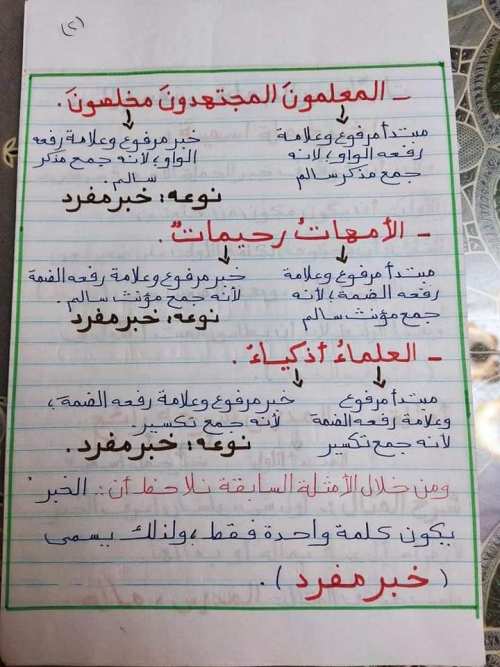 (٢)
- المعلمونَ المجتهدونَ مخلصونَ.
مبتدأ مرفوع وعلامة خبر مرفوع وعلامة رفعه
رفعه الواو؛ لأنه الواو؛ لأنه جمع مذكر
جمع مذكر سالم سالم.
نوعه: خبر مفرد
- الأمهاتُ رحيماتٌ.
مبتدأ مرفوع وعلامة خبر مرفوع وعلامة رفعه الضمة
رفعه الضمة؛ لأنه لأنه جمع مؤنث سالم.
جمع مؤنث سالم نوعه: خبر مفرد
- العلماءُ أذكياءُ.
مبتدأ مرفوع خبر مرفوع وعلامة رفعه الضمة؛
وعلامة رفعه الضمة لأنه جمع تكسير.
لأنه جمع تكسير نوعه: خبر مفرد.
ومن خلال الأمثلة السابقة نلاحظ أن: الخبر
يكون كلمة واحدة فقط، ولذلك يسمى
(خبر مفرد).